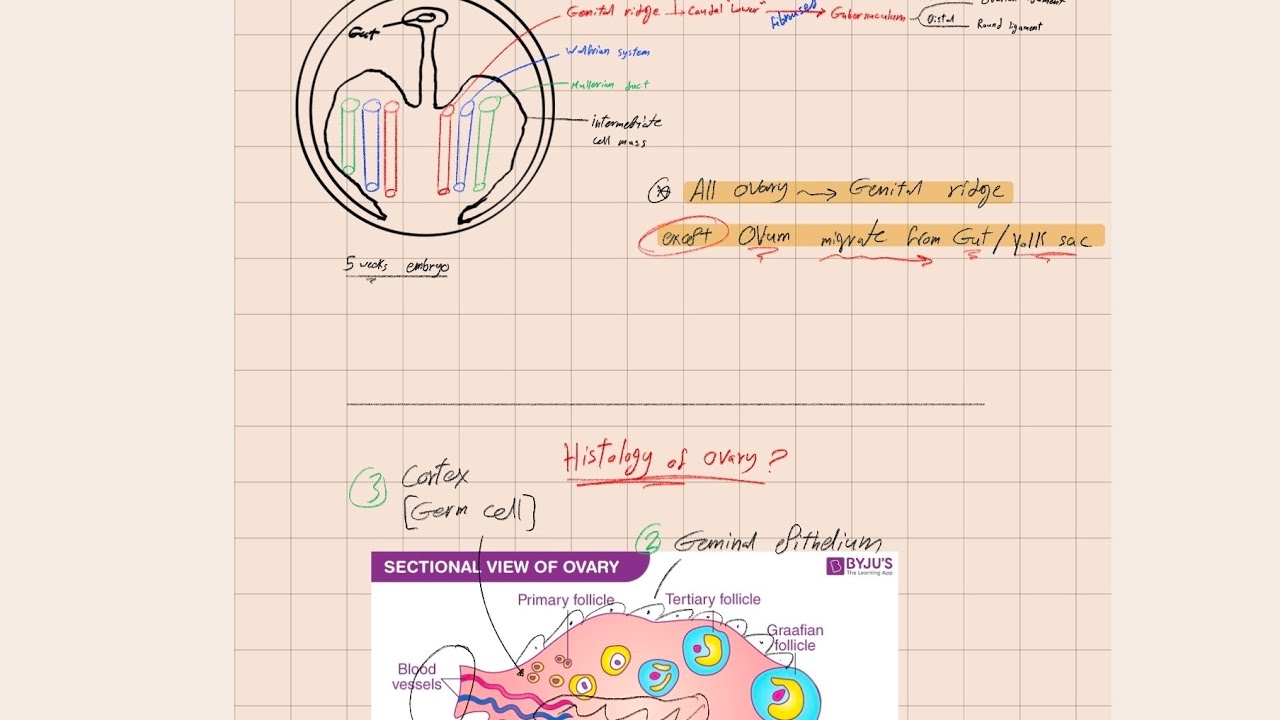 Genital ridge → Caudal "Lower" fibroused → Gubernaculum
Distal Round ligament
Gut
Wolfian system
Mullerian duct
intermediate
cell mass
All ovary → Genital ridge
except Ovum migrate from Gut / yolk sac
5 weeks embryo
Histology of ovary?
3 Cortex
[Germ cell]
2 Geminal epithelium
SECTIONAL VIEW OF OVARY
BYJU'S
The Learning App
Primary follicle
Tertiary follicle
Graafian
follicle
Blood
vessels